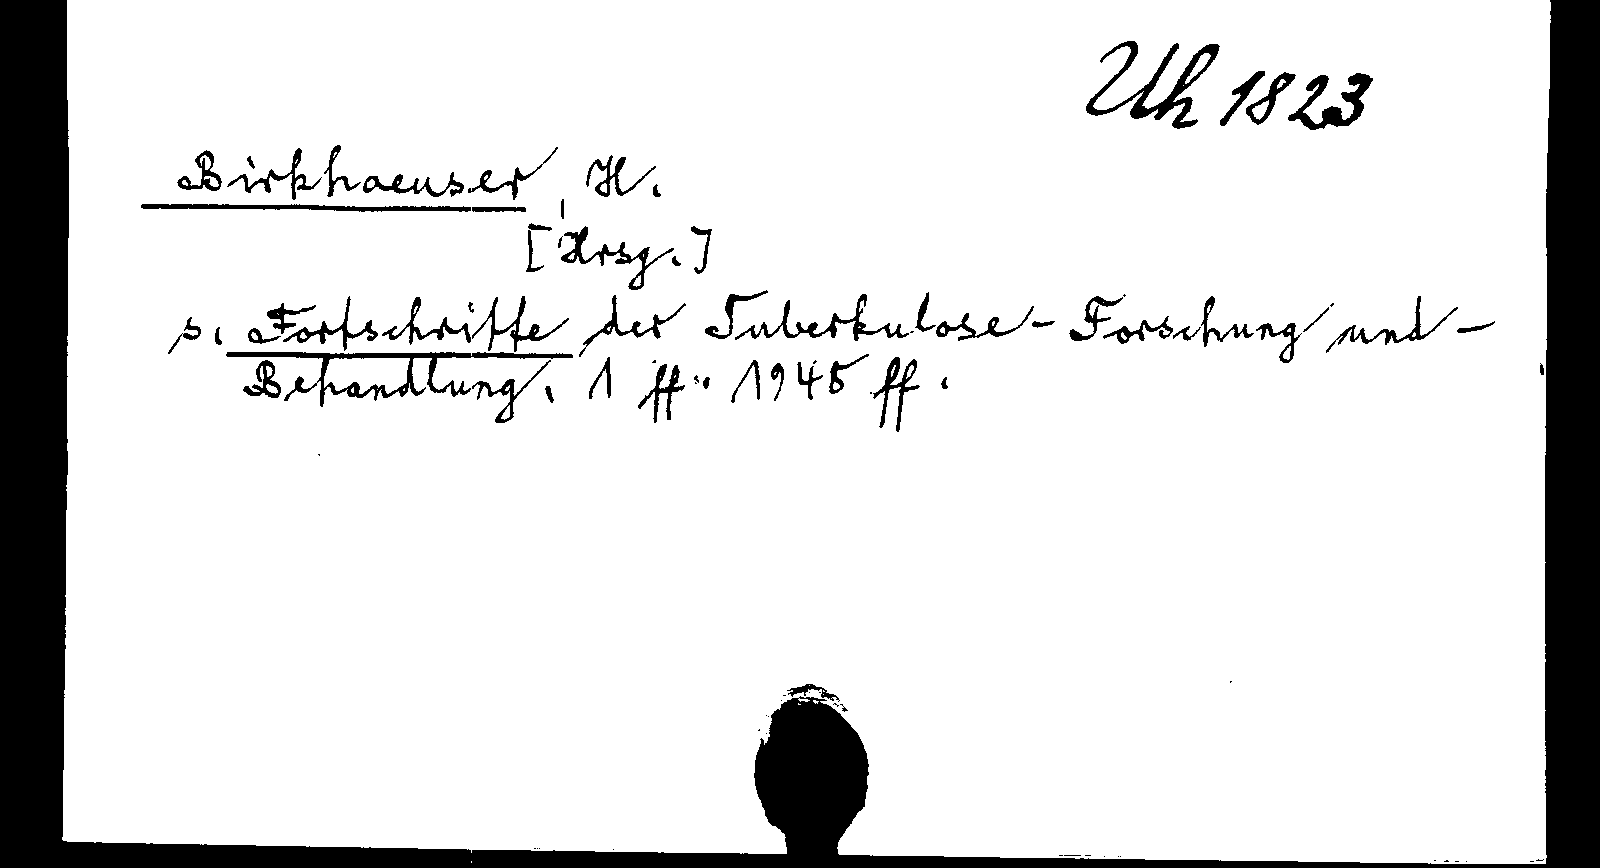 Uh 1823
Birkhaeuser, H.
[Hrsg.]
s. Fortschritte der Tuberkulose-Forschung und -
Behandlung. 1 ff. 1945 ff.